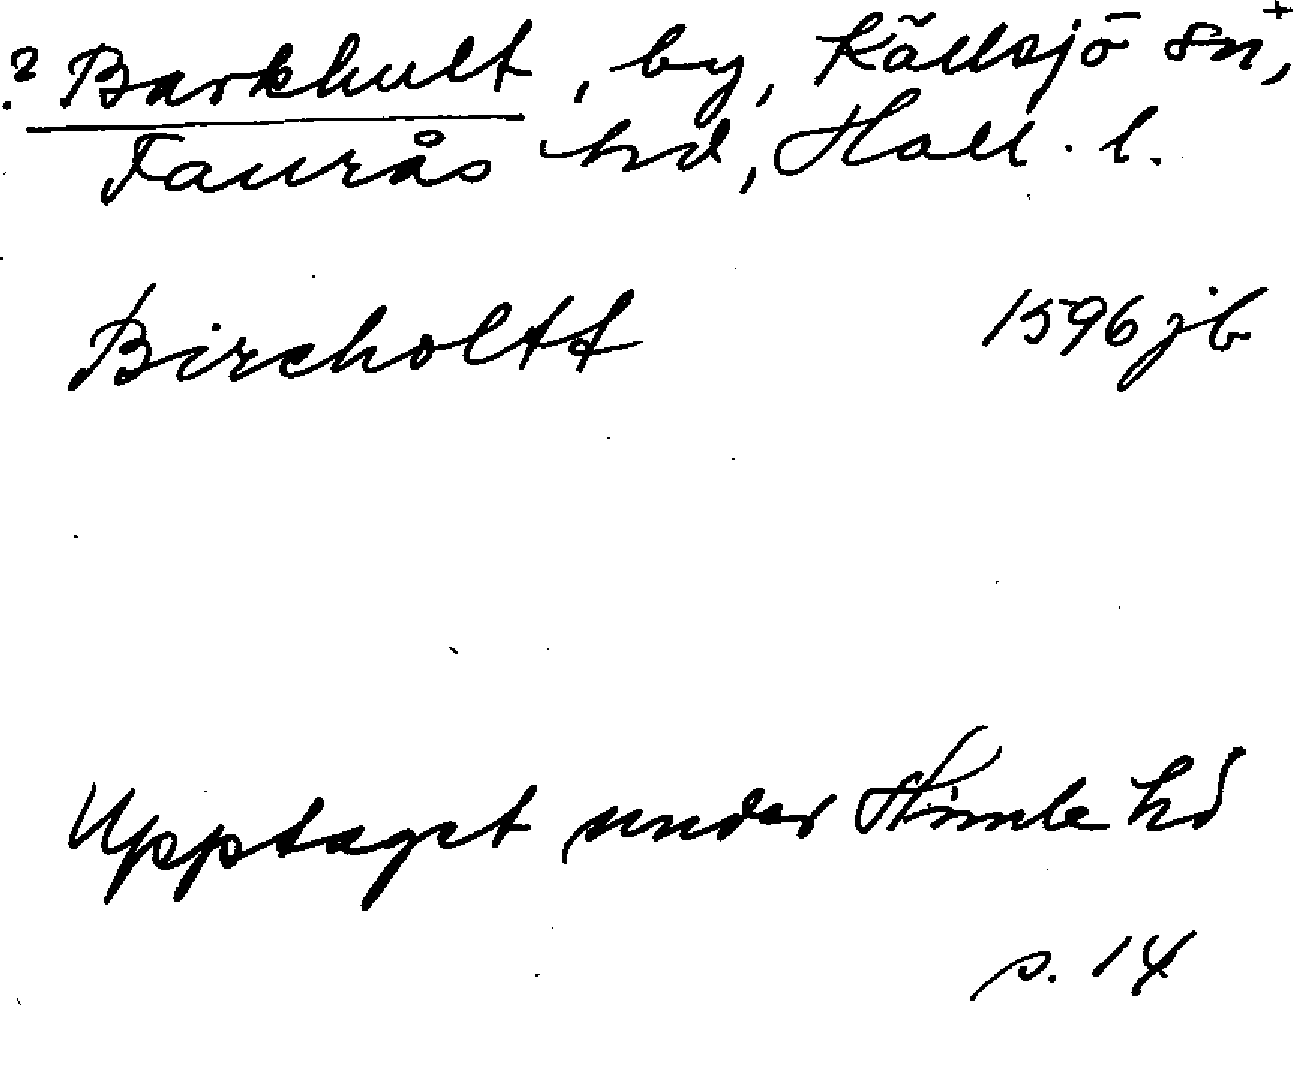 ? Barkhult, by, Källsjö sn, +
Faurås hd, Hall. l.
Bircholtt 1596 jb
Upptaget under Himle hd
s. 14